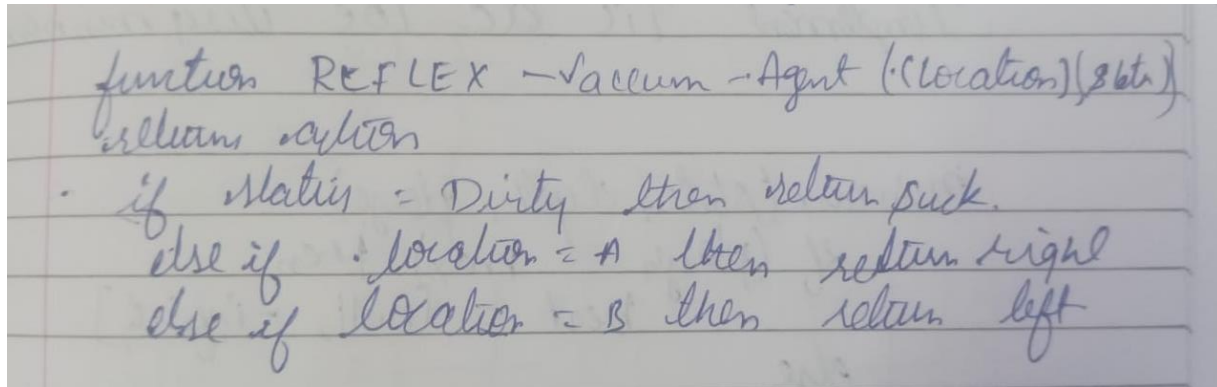 function REFLEX - Vaccum - Agent ((location)(state)
return action
if status = Dirty then return suck.
else if location = A then return right
else if location = B then return left